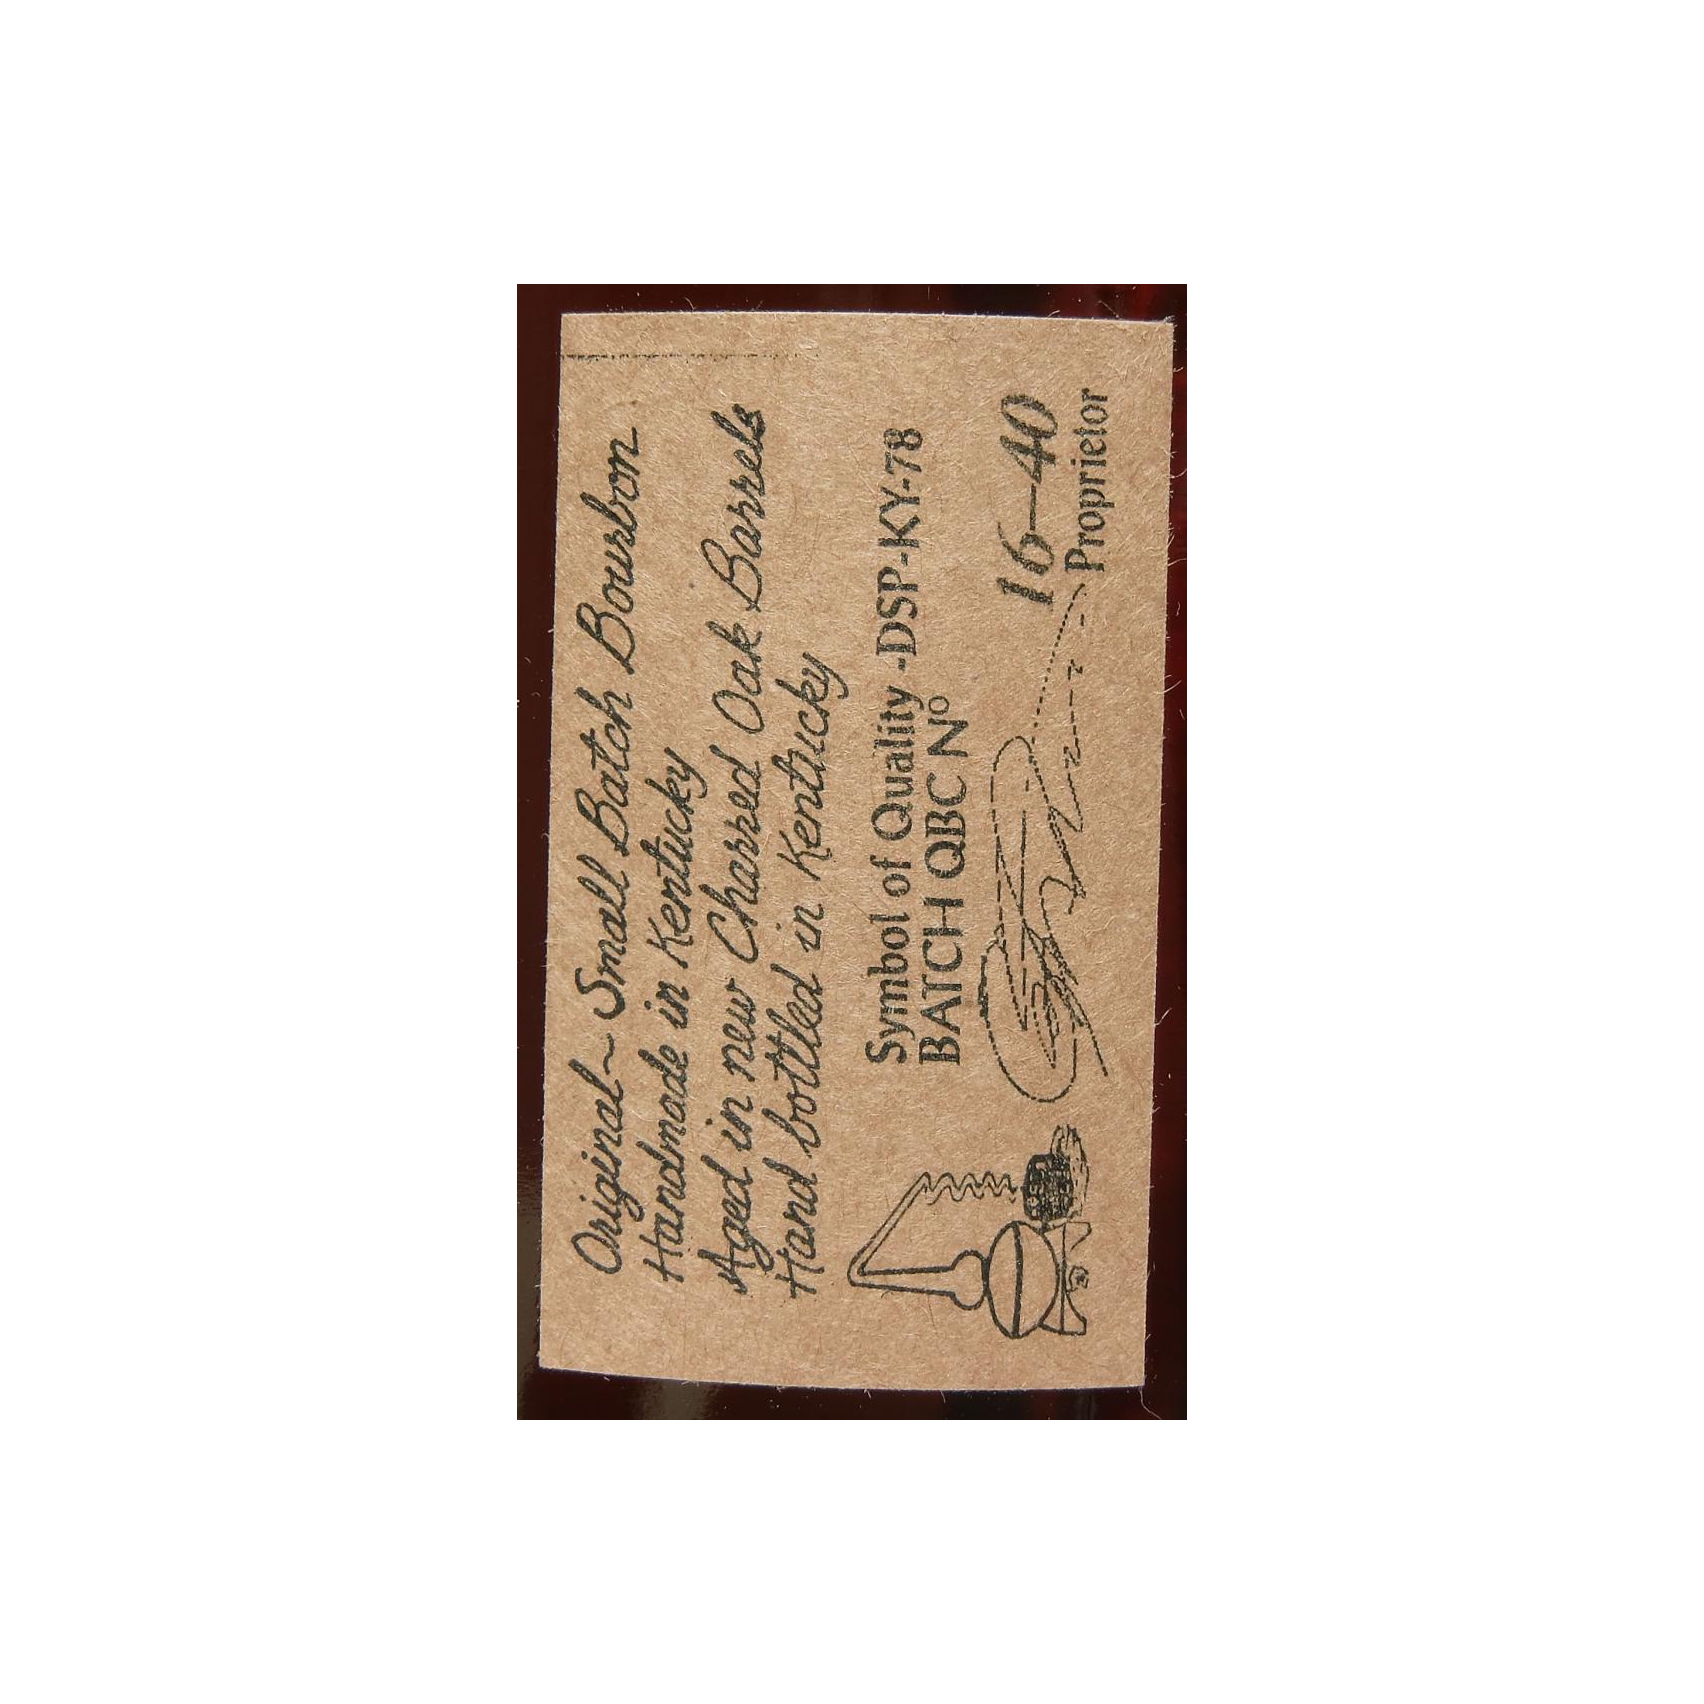 Original ~ Small Batch Bourbon
Handmade in Kentucky
Aged in new Charred Oak Barrels
Hand bottled in Kentucky
Symbol of Quality -DSP-KY-78
BATCH QBC Nº
16-40
Proprietor